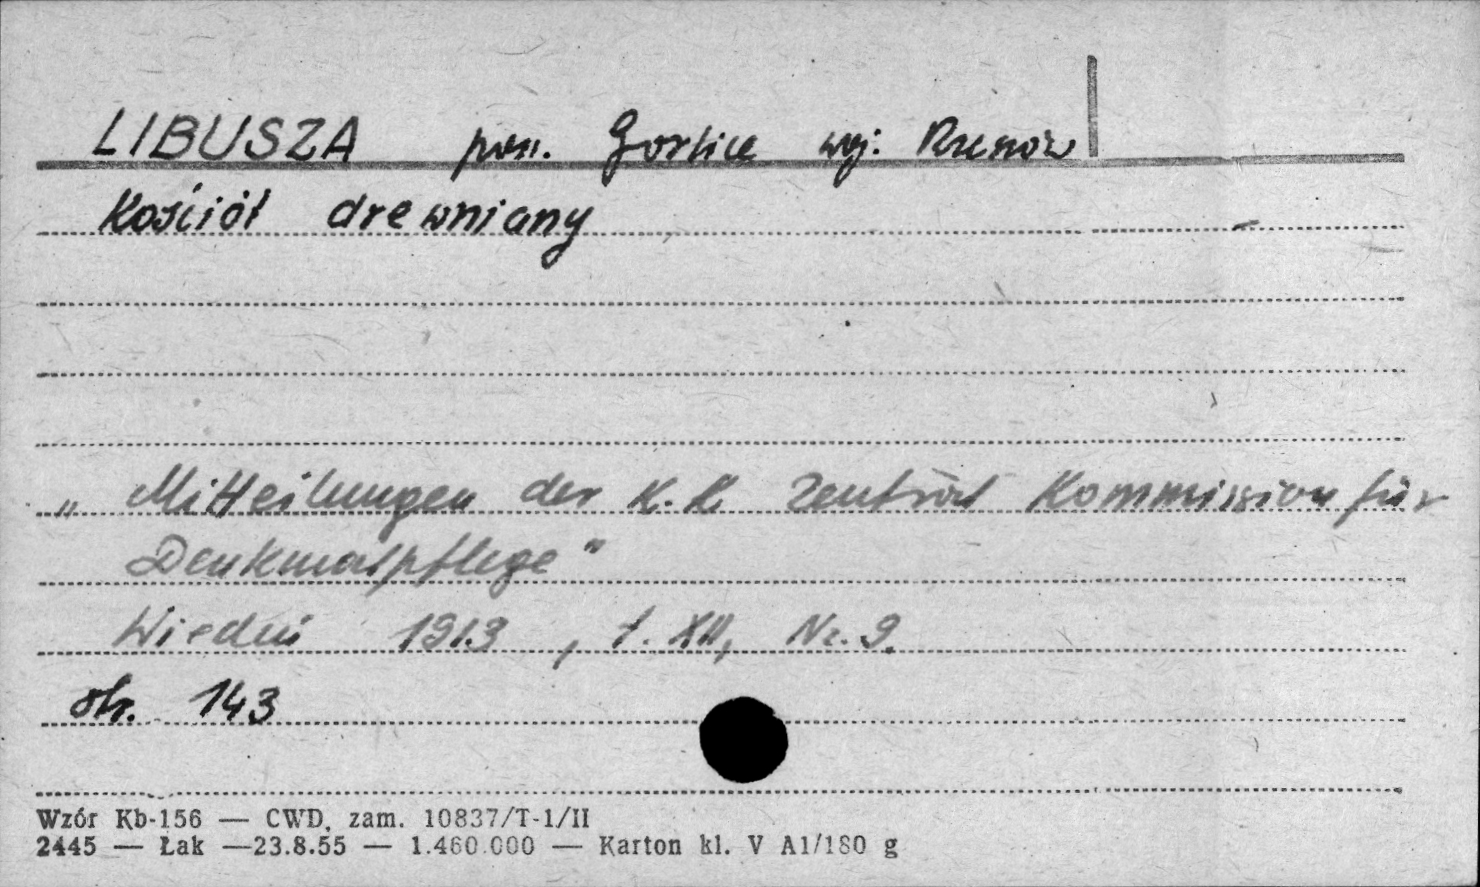 LIBUSZA pow. Gorlice woj. Rzeszów
Kościół drewniany
„Mitteilungen der K.K. Zentral Kommission für
Denkmalpflege"
Wiedeń 1913, t. XII, Nr. 9.
str. 143
Wzór Kb-156 — CWD, zam. 10837/T-1/II
2445 — Łak —23.8.55 — 1.460.000 — Karton kl. V A1/180 g